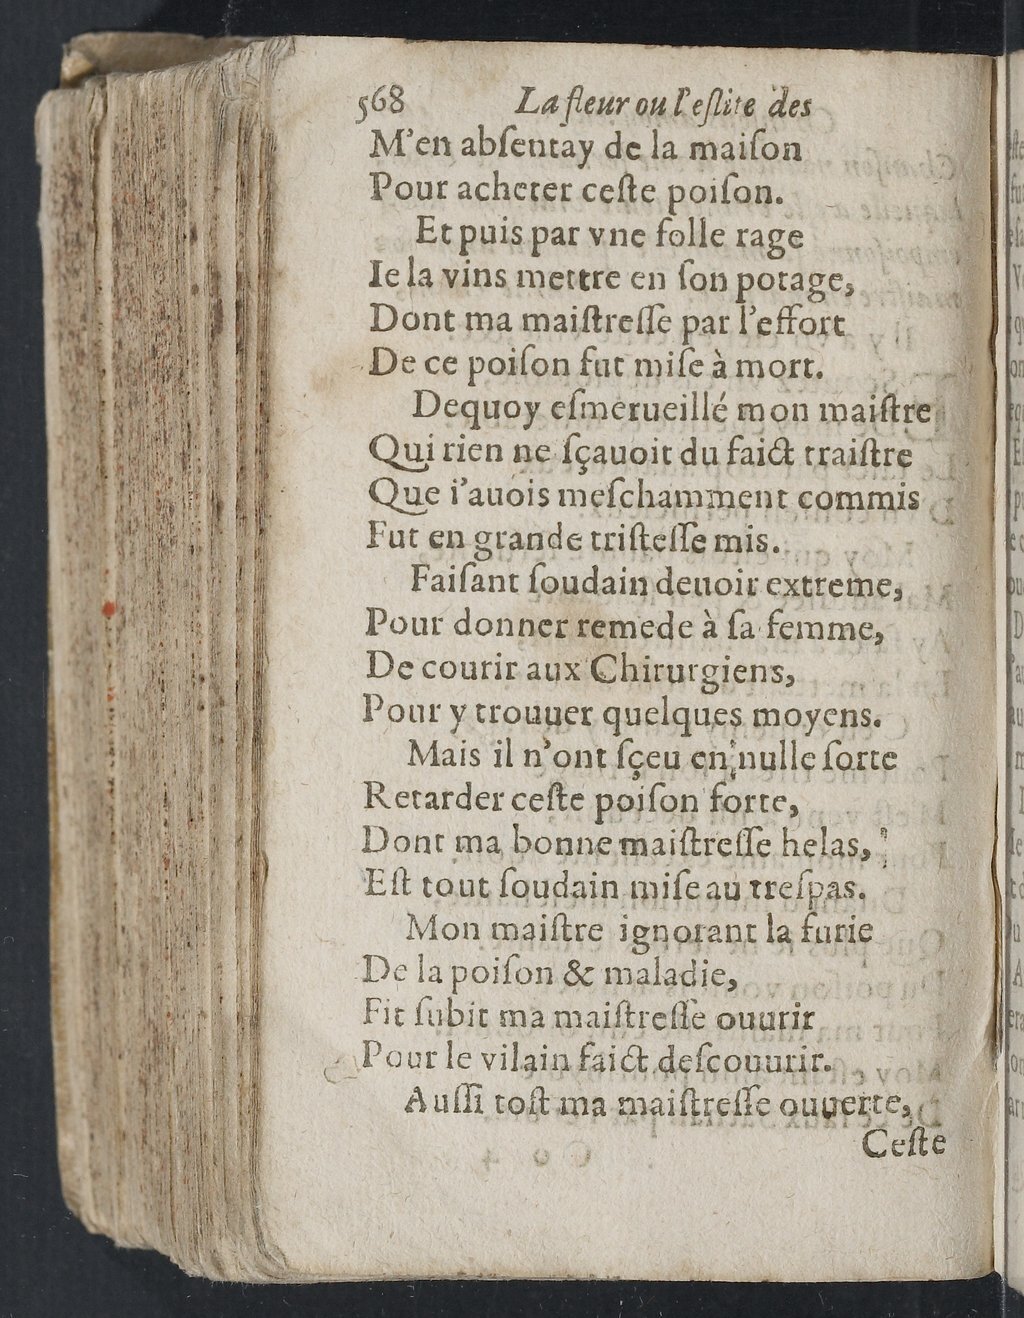 568 La fleur ou l'eſlite des
M'en abſentay de la maiſon
Pour acheter ceſte poiſon.
Et puis par vne folle rage
Ie la vins mettre en ſon potage,
Dont ma maiſtreſſe par l'effort
De ce poiſon fut miſe à mort.
Dequoy eſmerueillé mon maiſtre
Qui rien ne ſçauoit du faict traiſtre
Que i'auois meſchamment commis
Fut en grande triſteſſe mis.
Faiſant ſoudain deuoir extreme,
Pour donner remede à ſa femme,
De courir aux Chirurgiens,
Pour y trouuer quelques moyens.
Mais il n'ont ſçeu en nulle ſorte
Retarder ceſte poiſon forte,
Dont ma bonne maiſtreſſe helas,
Eſt tout ſoudain miſe au treſpas.
Mon maiſtre ignorant la furie
De la poiſon & maladie,
Fit ſubit ma maiſtreſſe ouurir
Pour le vilain faict deſcouurir.
Auſſi toſt ma maiſtreſſe ouuerte,
Ceſte